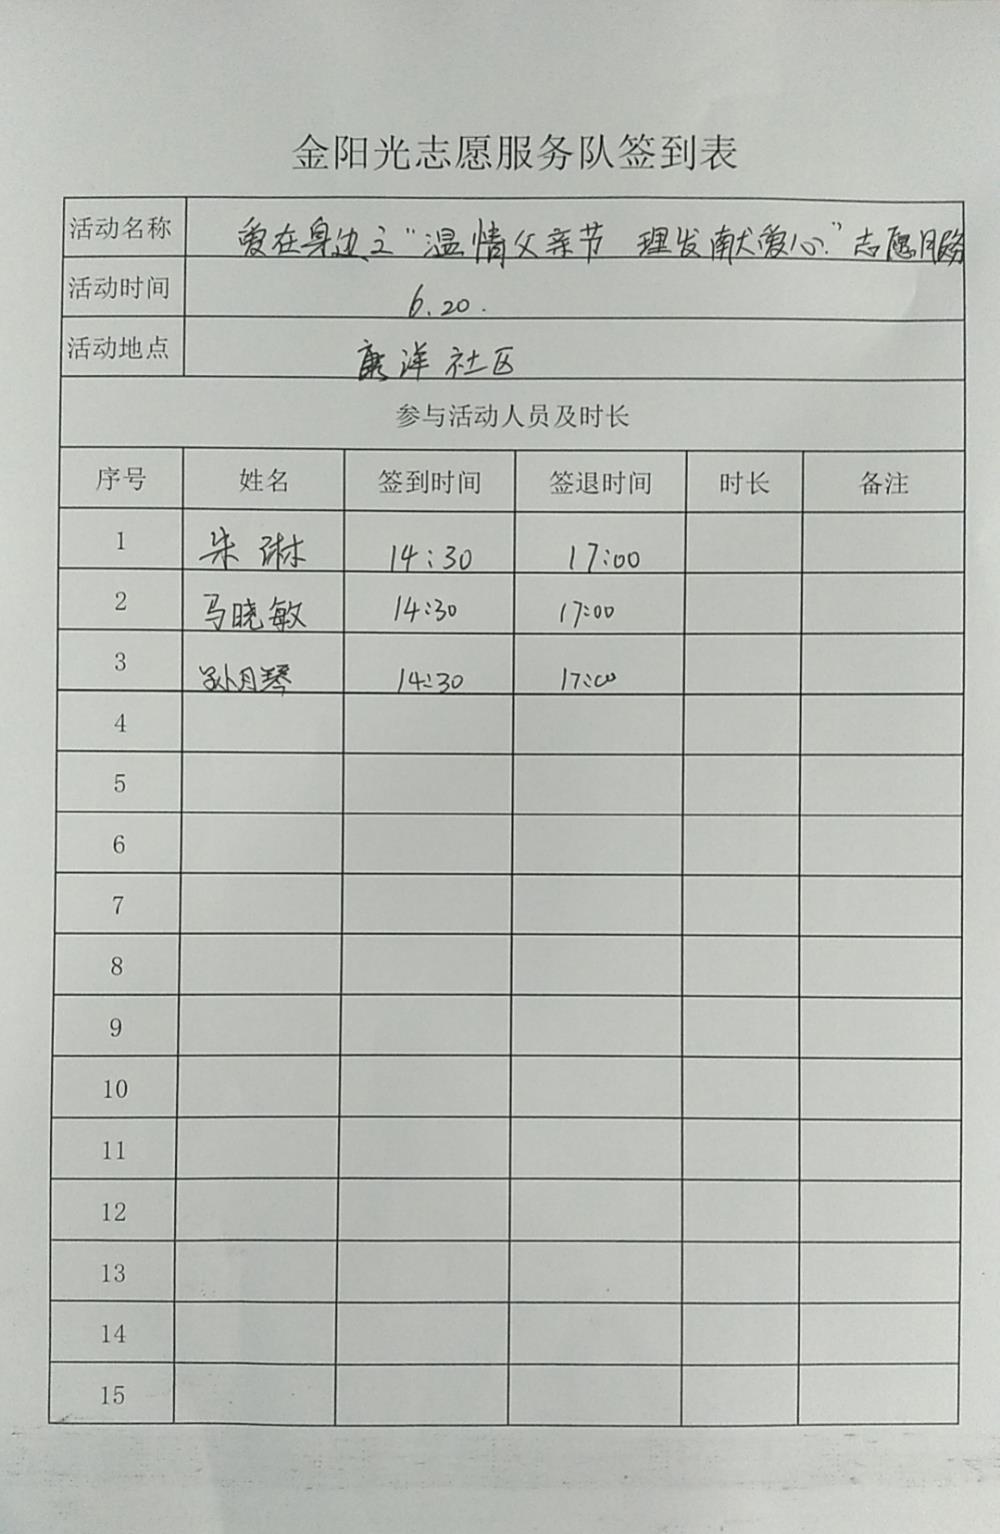 金阳光志愿服务队签到表
活动名称 爱在身边之“温情父亲节 理发献爱心”志愿服务
活动时间 6.20.
活动地点 康洋社区
参与活动人员及时长
序号 姓名 签到时间 签退时间 时长 备注
1 朱琳 14:30 17:00
2 马晓敏 14:30 17:00
3 孙月琴 14:30 17:00
4
5
6
7
8
9
10
11
12
13
14
15